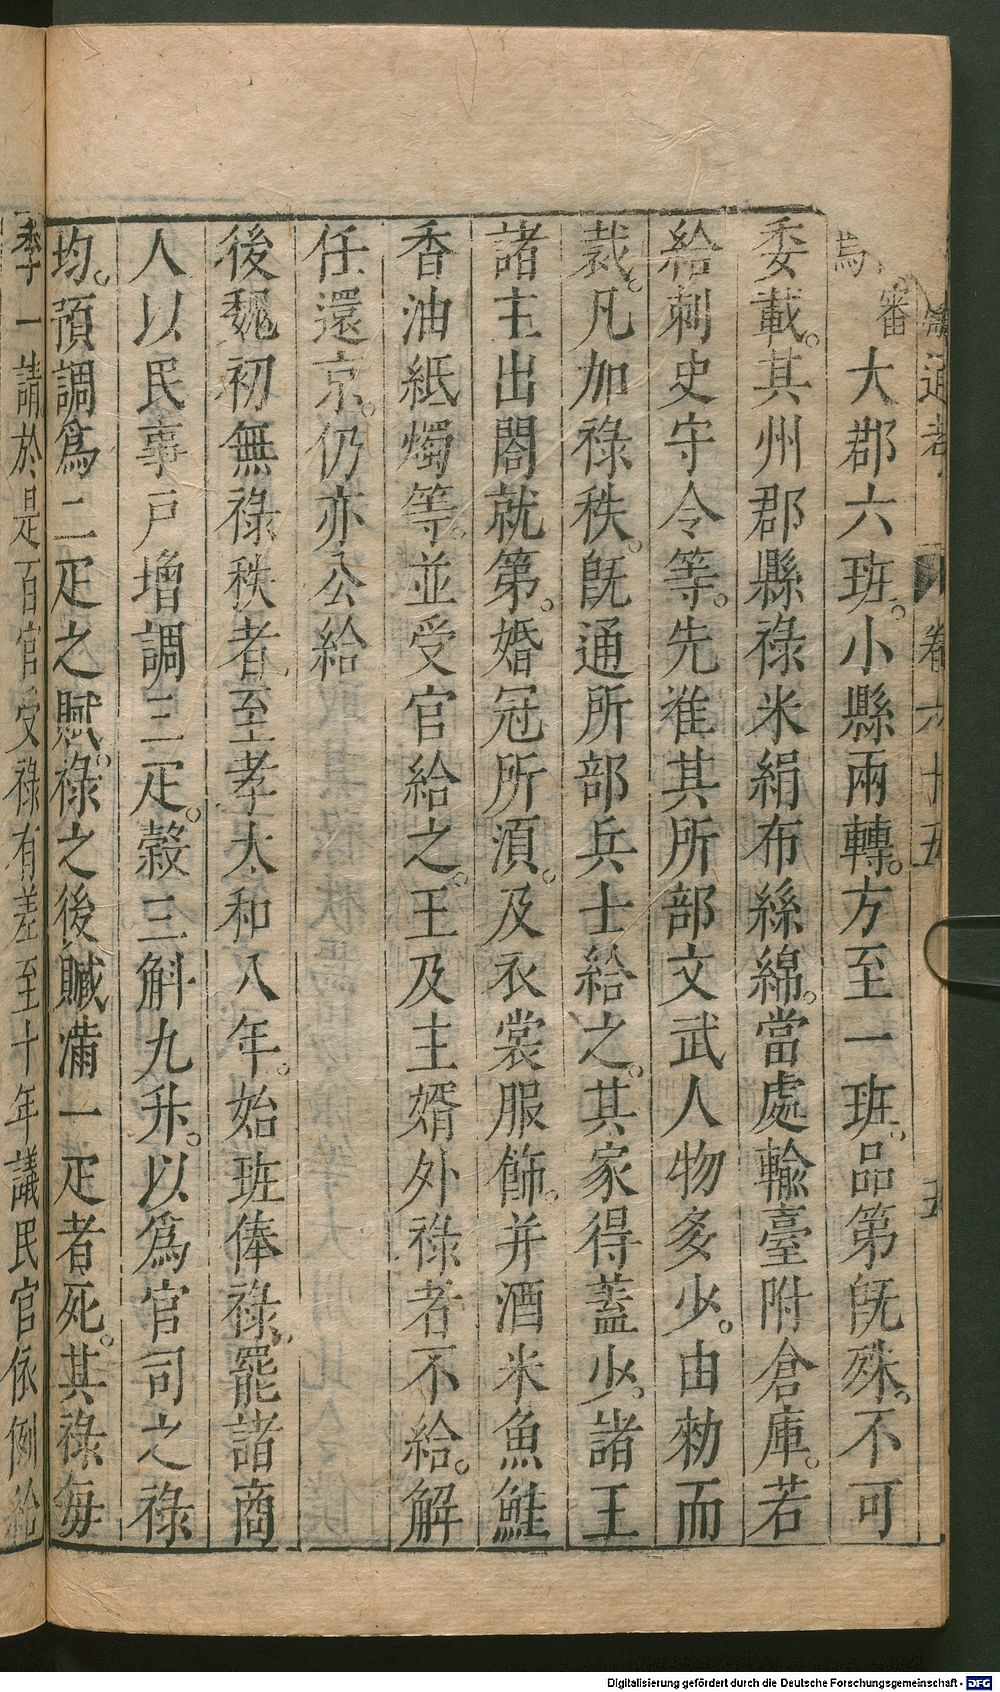 通考 卷六十五 五
審大郡六班。小縣兩轉。方至一班。品第旣殊。不可
委載。其州郡縣祿米絹布絲綿。當處輸臺附倉庫。若
給刺史守令等。先準其所部文武人物多少。由勑而
裁。凡加祿秩。旣通所部兵士給之。其家得蓋少。諸王
諸主出閤就第。婚冠所須。及衣裳服飾。并酒米魚鮭
香油紙燭等。並受官給之。王及主婿外祿者不給。解
任還京。仍亦公給
後魏初無祿秩者。至孝太和八年。始班俸祿。罷諸商
人以民事戶增調三疋。穀三斛九升。以爲官司之祿
均。預調爲二疋之賦。祿之後贓滿一疋者死。其祿每
季一請於是百官受祿有差至十年議民官依例給
Digitalisierung gefördert durch die Deutsche Forschungsgemeinschaft - DFG